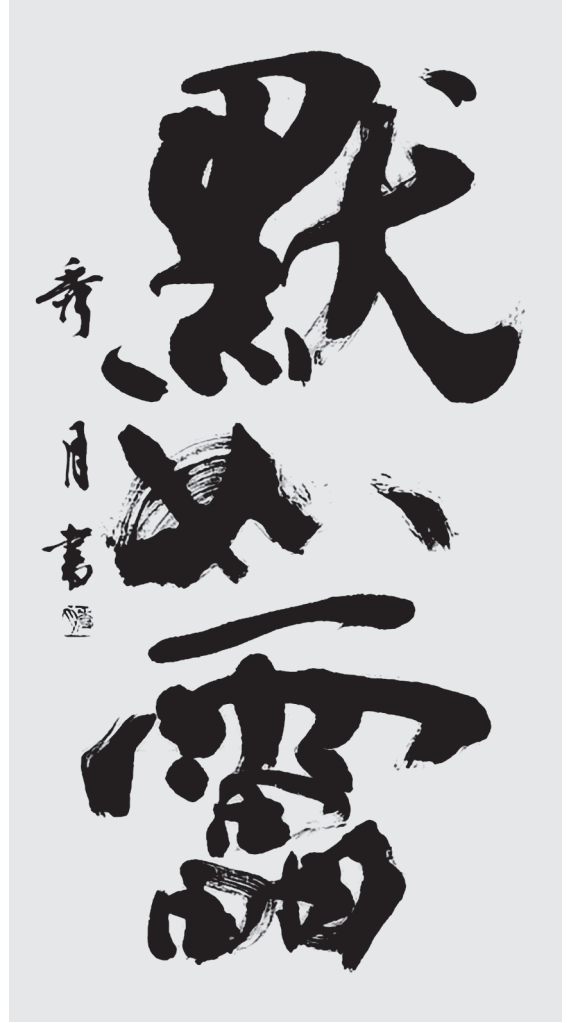 默如雷
秀月書